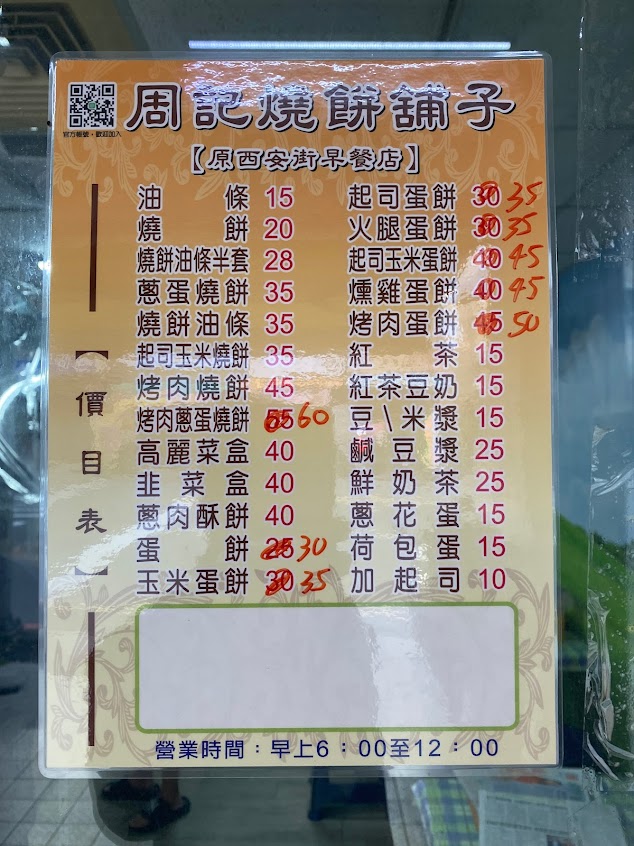 周記燒餅舖子
官方帳號，歡迎加入
【原西安街早餐店】
【價目表】
油條 15
燒餅 20
燒餅油條半套 28
蔥蛋燒餅 35
燒餅油條 35
起司玉米燒餅 35
烤肉燒餅 45
烤肉蔥蛋燒餅 55 60
高麗菜盒 40
韭菜盒 40
蔥肉酥餅 40
蛋餅 25 30
玉米蛋餅 30 35
起司蛋餅 30 35
火腿蛋餅 30 35
起司玉米蛋餅 40 45
燻雞蛋餅 40 45
烤肉蛋餅 45 50
紅茶 15
紅茶豆奶 15
豆\米漿 15
鹹豆漿 25
鮮奶茶 25
蔥花蛋 15
荷包蛋 15
加起司 10
營業時間：早上6：00至12：00